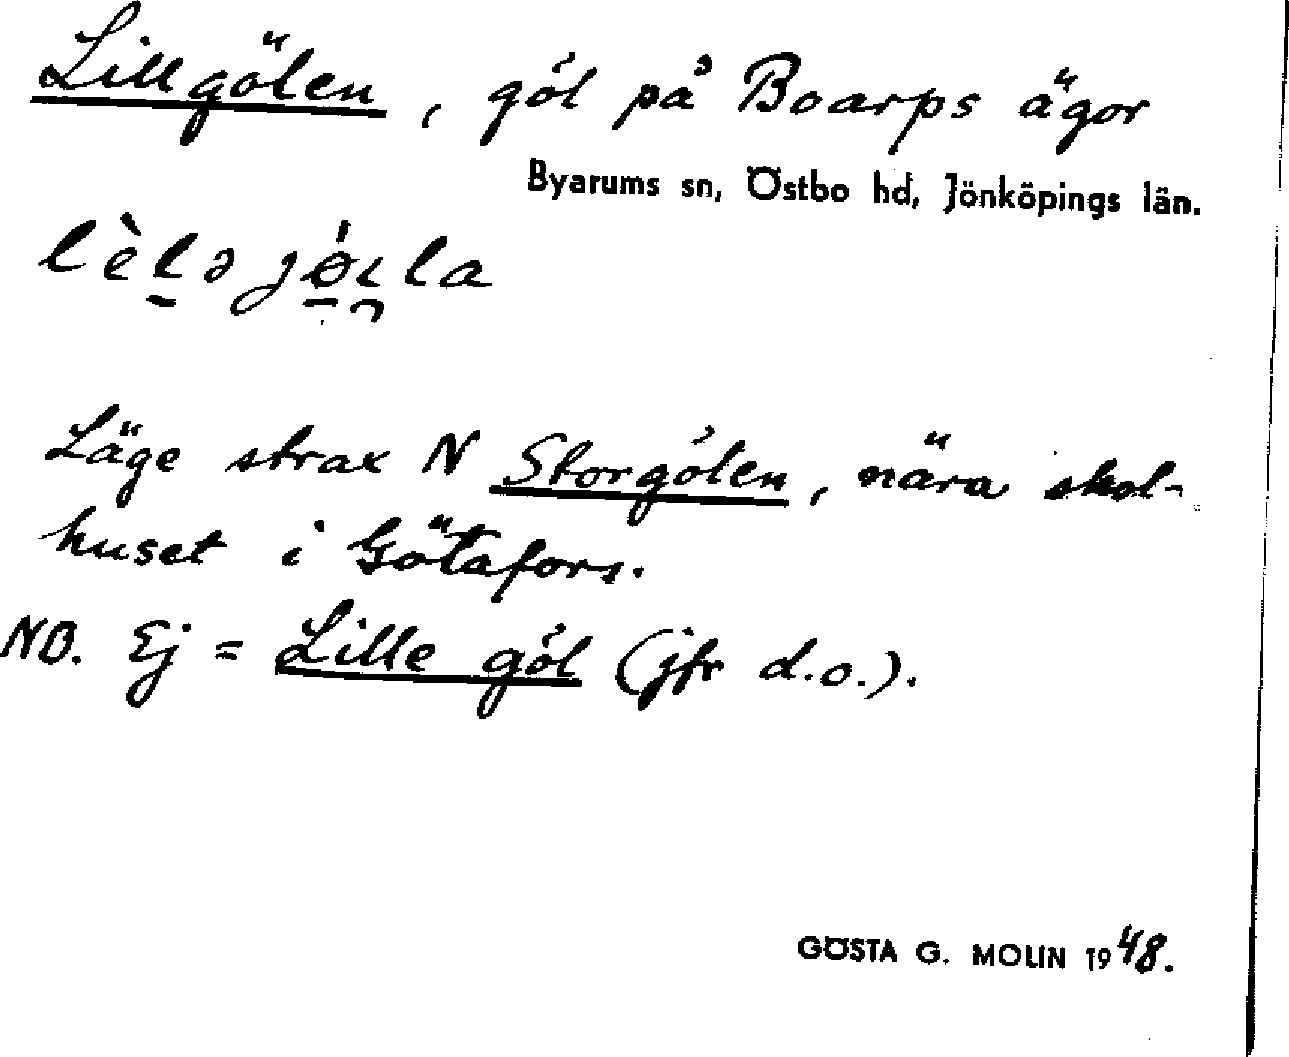 Lillgölen, göl på Boarps ägor
Byarums sn, Östbo hd, Jönköpings län.
lèlə jǿlla
Läge strax N Storgölen, nära skol-
huset i Götafors.
NB. Ej = Lille göl (jfr d.o.).
GÖSTA G. MOLIN 1948.